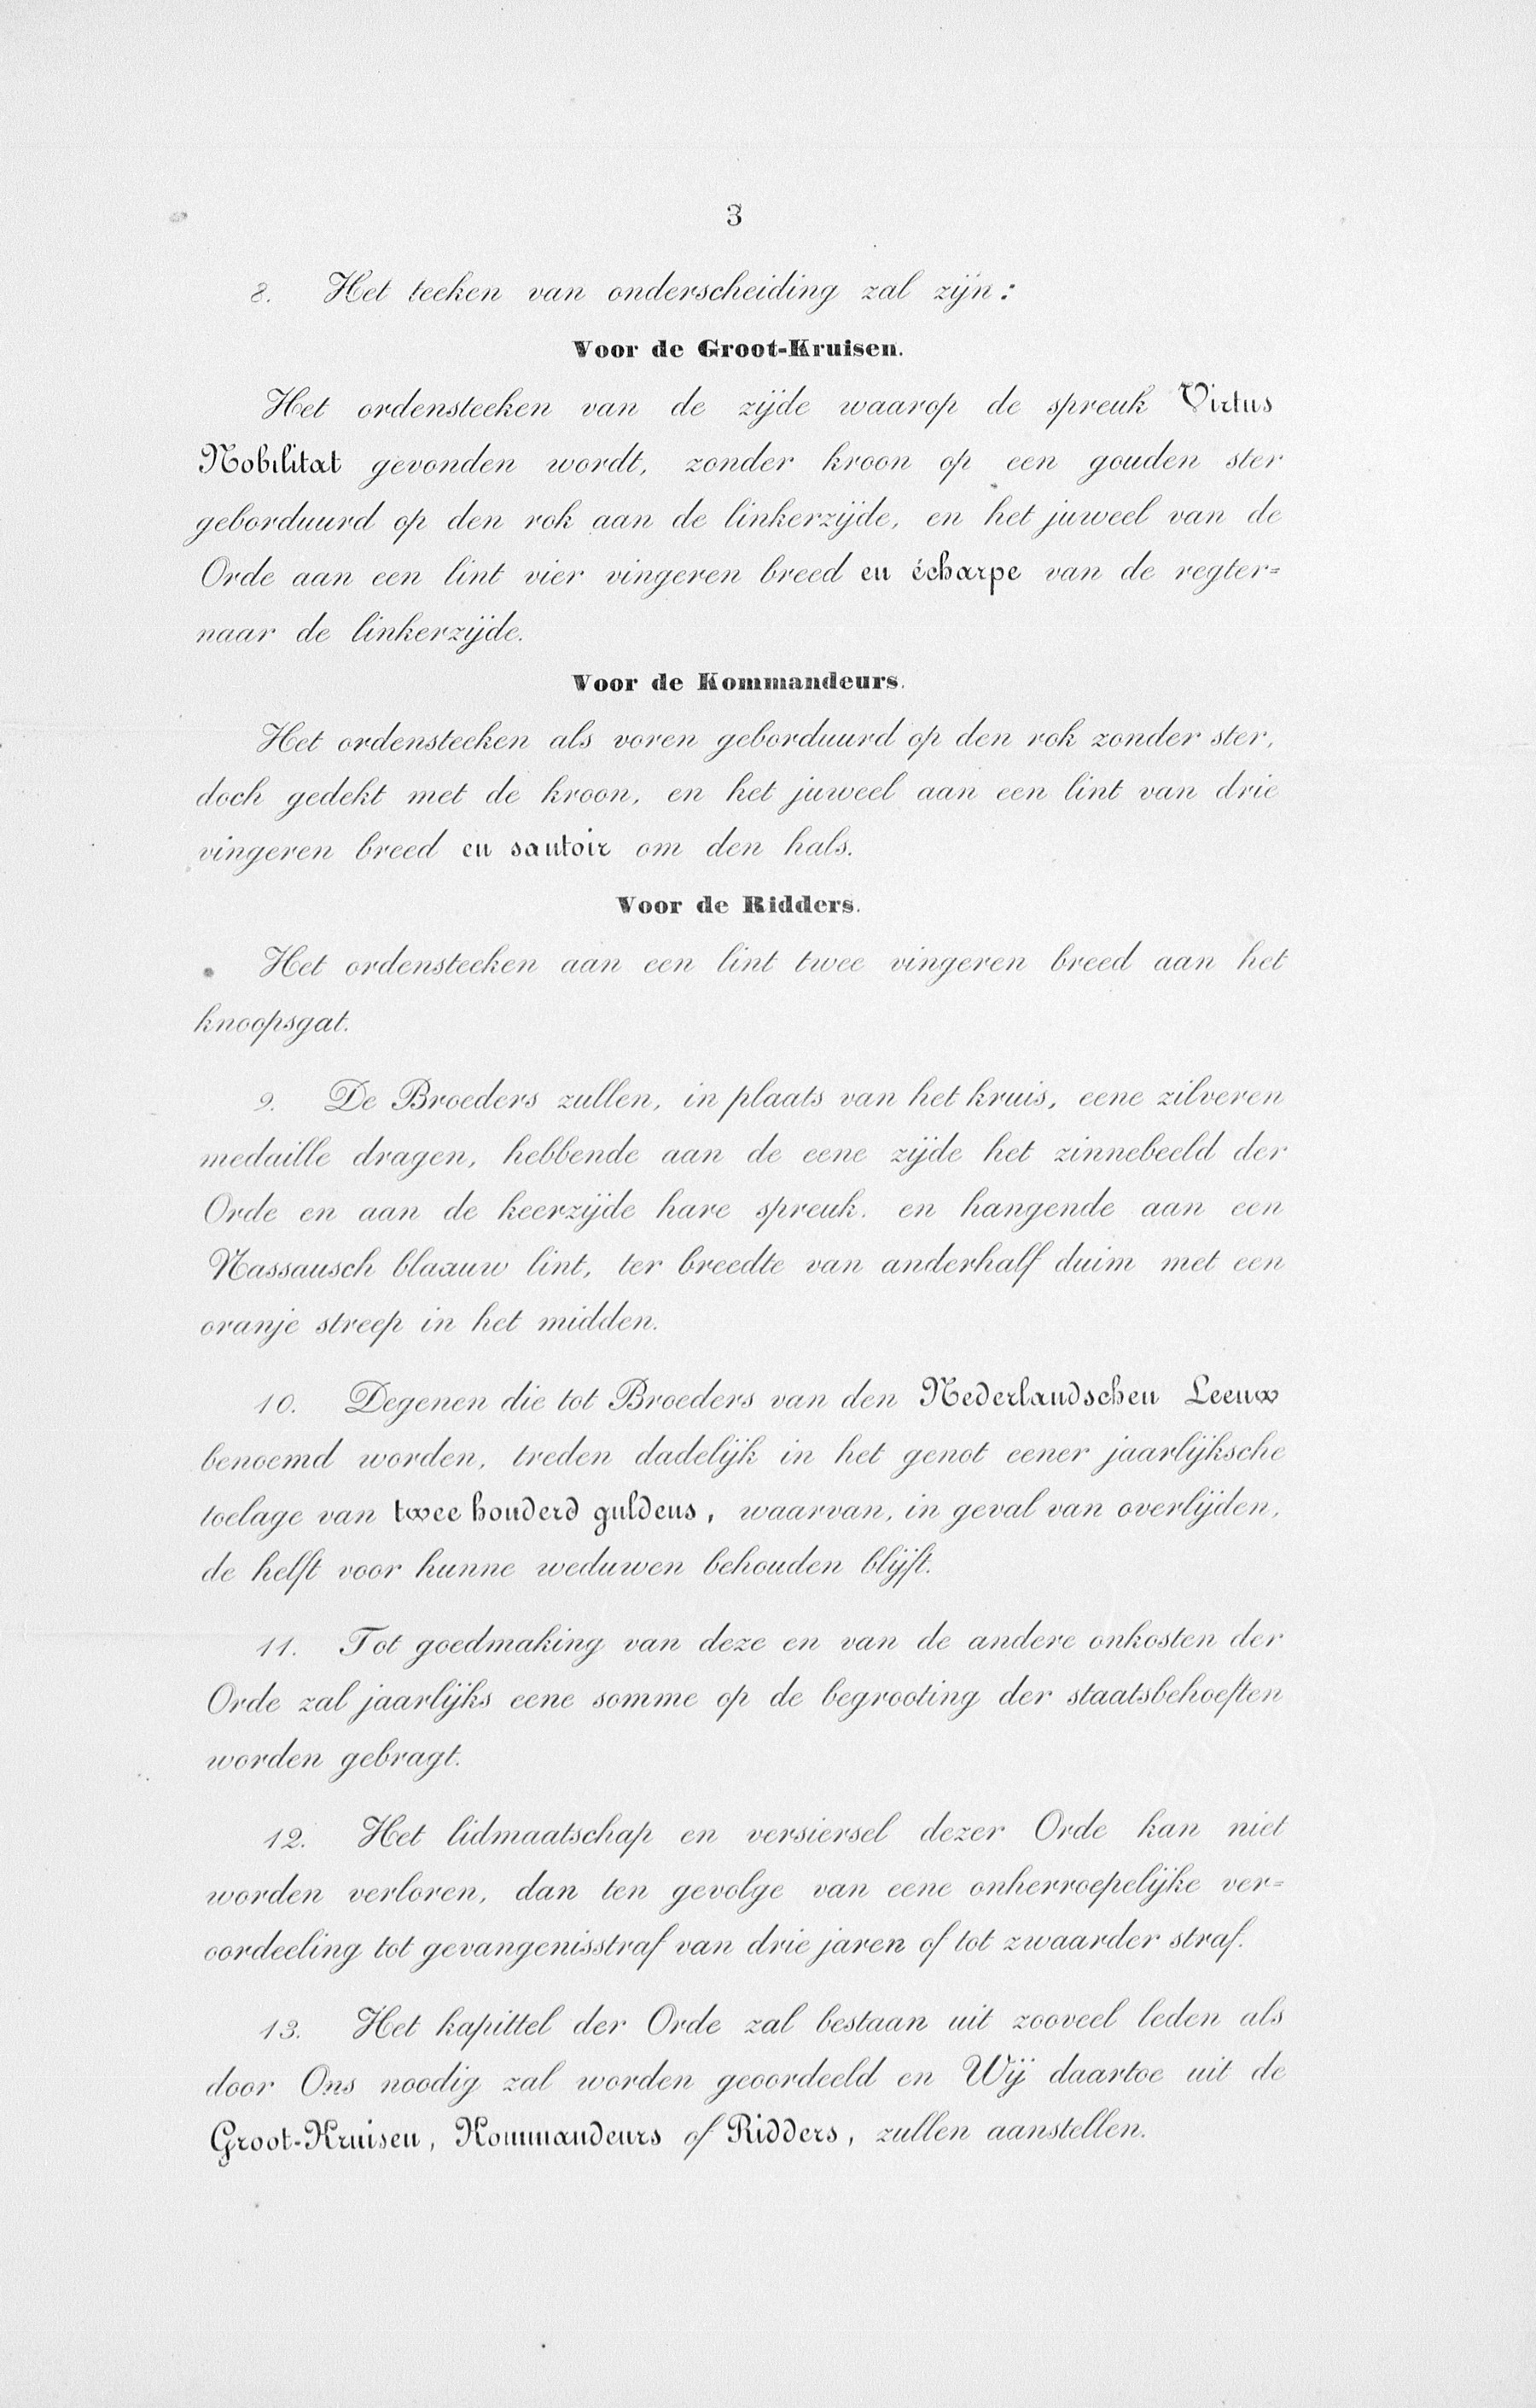 3
8. Het teeken van onderscheiding zal zijn:
Voor de Groot-Kruisen.
Het ordensteeken van de zijde waarop de spreuk Virtus
Nobilitat gevonden wordt, zonder kroon op een gouden ster
geborduurd op den rok aan de linkerzijde, en het juweel van de
Orde aan een lint vier vingeren breed en écharpe van de regter=
naar de linkerzijde.
Voor de Kommandeurs.
Het ordensteeken als voren geborduurd op den rok zonder ster,
doch gedekt met de kroon, en het juweel aan een lint van drie
vingeren breed en sautoir om den hals.
Voor de Ridders.
Het ordensteeken aan een lint twee vingeren breed aan het
knoopsgat.
9. De Broeders zullen, in plaats van het kruis, eene zilveren
medaille dragen, hebbende aan de eene zijde het zinnebeeld der
Orde en aan de keerzijde hare spreuk. en hangende aan een
Nassausch blaauw lint, ter breedte van anderhalf duim met een
oranje streep in het midden.
10. Degenen die tot Broeders van den Nederlandschen Leeuw
benoemd worden, treden dadelijk in het genot eener jaarlijksche
toelage van twee honderd guldens, waarvan, in geval van overlijden,
de helft voor hunne weduwen behouden blijft.
11. Tot goedmaking van deze en van de andere onkosten der
Orde zal jaarlijks eene somme op de begrooting der staatsbehoeften
worden gebragt.
12. Het lidmaatschap en versiersel dezer Orde kan niet
worden verloren, dan ten gevolge van eene onherroepelijke ver=
oordeeling tot gevangenisstraf van drie jaren of tot zwaarder straf.
13. Het kapittel der Orde zal bestaan uit zooveel leden als
door Ons noodig zal worden geoordeeld en Wij daartoe uit de
Groot-Kruisen, Kommandeurs of Ridders, zullen aanstellen.